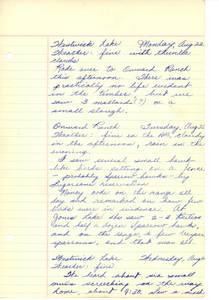 Westwick Lake Monday, Aug 22
Weather: fine with thunder
clouds
Rode over to Onward Ranch
this afternoon. There was
practically no life evident
in the timber, but we
saw 2 mallards (?) on a
small slough.
Onward Ranch Tuesday, Aug 23
Weather: fine in the AM, cloudy
in the afternoon, rain in the
evening.
I saw several small hawk-
like birds sitting on a
fence - probably sparrow hawks - by
Sugarcane reservation
Doney rode on the range all
day and remarked on how few
birds were in evidence. At
Jones Lake she saw
and half a dozen sparrow hawks,
and on the range a few vesper
sparrows, and that was all.
Westwick Lake Wednesday, Aug
Weather: fine
We heard about six small
owls screeching on the way
home, about 9:30. Saw a